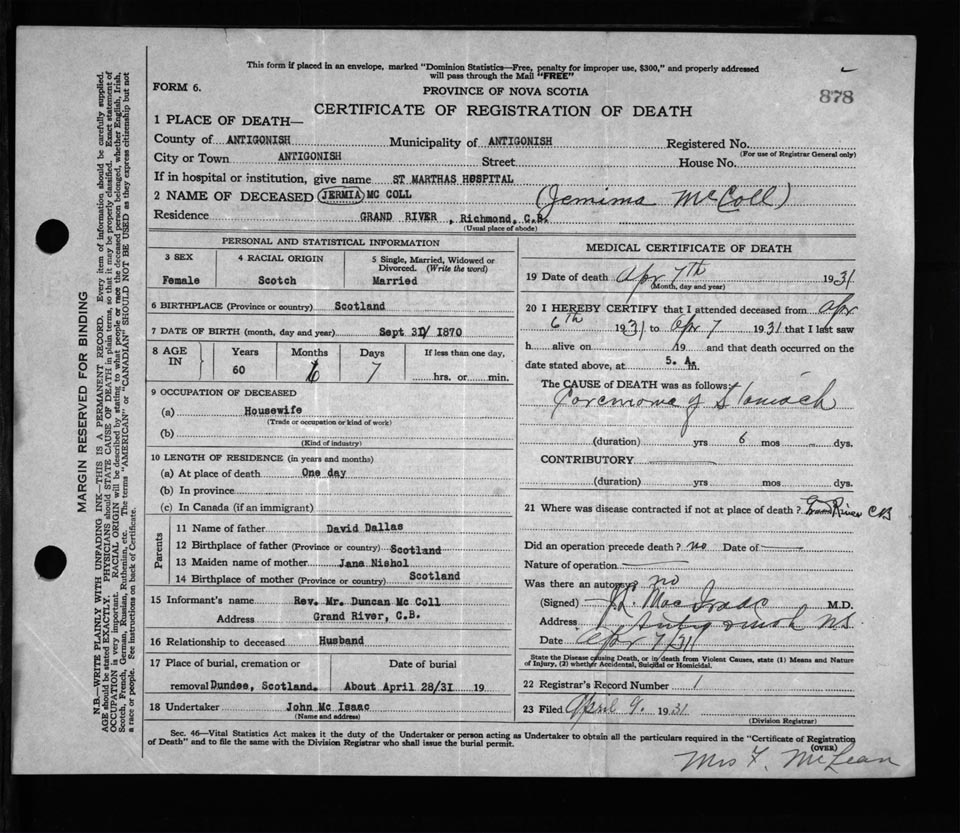 This form if placed in an envelope, marked "Dominion Statistics—Free, penalty for improper use, $300," and properly addressed
will pass through the Mail "FREE"
FORM 6.
PROVINCE OF NOVA SCOTIA
878
CERTIFICATE OF REGISTRATION OF DEATH
1 PLACE OF DEATH—
County of ANTIGONISH Municipality of ANTIGONISH Registered No.
(For use of Registrar General only)
City or Town ANTIGONISH Street House No.
If in hospital or institution, give name ST MARTHAS HOSPITAL
2 NAME OF DECEASED (JERMIA) MC COLL (Jemima McColl)
Residence GRAND RIVER , Richmond, C.B.
(Usual place of abode)
PERSONAL AND STATISTICAL INFORMATION
3 SEX 4 RACIAL ORIGIN 5 Single, Married, Widowed or
Divorced. (Write the word)
Female Scotch Married
6 BIRTHPLACE (Province or country) Scotland
7 DATE OF BIRTH (month, day and year) Sept 1870
8 AGE IN Years Months Days If less than one day,
60 6 7 hrs. or min.
9 OCCUPATION OF DECEASED
(a) Housewife
(Trade or occupation or kind of work)
(b)
(Kind of industry)
10 LENGTH OF RESIDENCE (in years and months)
(a) At place of death One day
(b) In province
(c) In Canada (if an immigrant)
Parents
11 Name of father David Dallas
12 Birthplace of father (Province or country) Scotland
13 Maiden name of mother Jane Nishol
14 Birthplace of mother (Province or country) Scotland
15 Informant's name Rev. Mr. Duncan Mc Coll
Address Grand River, C.B.
16 Relationship to deceased Husband
17 Place of burial, cremation or Date of burial
removal Dundee, Scotland. About April 28/31 19
18 Undertaker John Mc Isaac
(Name and address)
MEDICAL CERTIFICATE OF DEATH
19 Date of death Apr 7th 1931
(Month, day and year)
20 I HEREBY CERTIFY that I attended deceased from Apr
6th 1931 to Apr 7 1931 that I last saw
h alive on 19 and that death occurred on the
date stated above, at 5. A m.
The CAUSE of DEATH was as follows:
of Stomach
(duration) yrs 6 mos dys.
CONTRIBUTORY
(duration) yrs mos dys.
21 Where was disease contracted if not at place of death? Grand River C B
Did an operation precede death? no Date of
Nature of operation
Was there an autopsy no
(Signed) Mac Isaac M.D.
Address Antigonish NS.
Date Apr 7/31
State the Disease causing Death, or in death from Violent Causes, state (1) Means and Nature
of Injury, (2) whether Accidental, Suicidal or Homicidal.
22 Registrar's Record Number 1
23 Filed April 9. 1931
(Division Registrar)
Sec. 46—Vital Statistics Act makes it the duty of the Undertaker or person acting as Undertaker to obtain all the particulars required in the "Certificate of Registration
of Death" and to file the same with the Division Registrar who shall issue the burial permit.
(OVER)
Mrs F. McLean
MARGIN RESERVED FOR BINDING
N.B.—WRITE PLAINLY WITH UNFADING INK—THIS IS A PERMANENT RECORD. Every item of information should be carefully supplied.
AGE should be stated EXACTLY. PHYSICIANS should STATE CAUSE OF DEATH in plain terms, so that it may be properly classified. Exact statement of
OCCUPATION is very important. RACIAL ORIGIN will be described by stating to what people or race the deceased person belonged, whether English, Irish,
Scotch, French, German, Russian, Ruthenian, etc. The terms "AMERICAN" or "CANADIAN" SHOULD NOT BE USED as they express citizenship but not
a race or people. See instructions on back of Certificate.